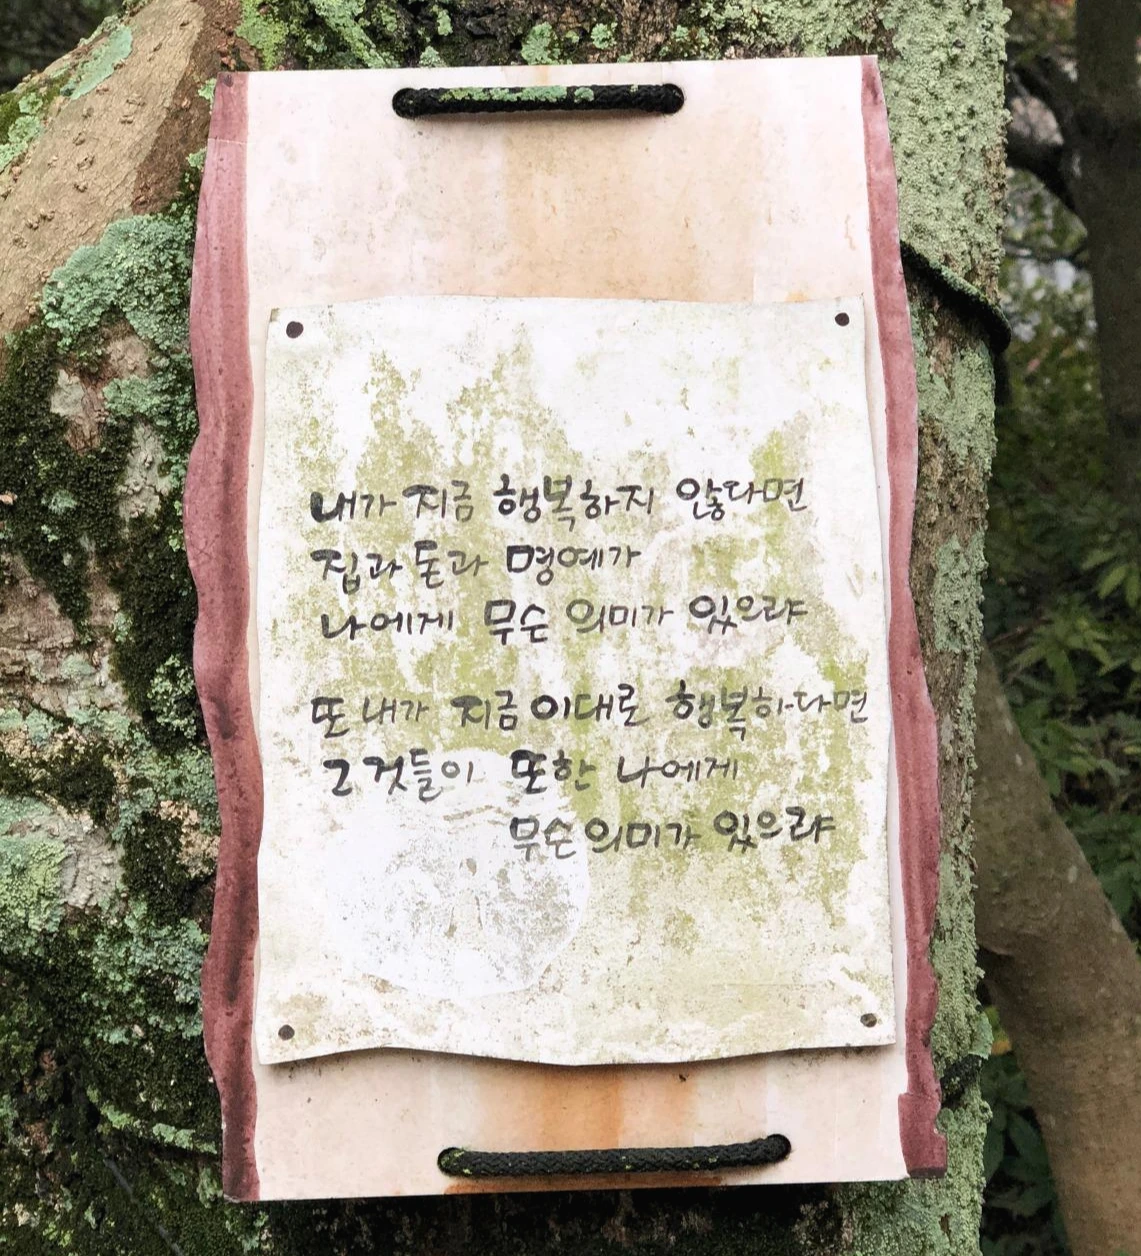 내가 지금 행복하지 않다면
집과 돈과 명예가
나에게 무슨 의미가 있으랴
또 내가 지금 이대로 행복하다면
그것들이 또한 나에게
무슨 의미가 있으랴